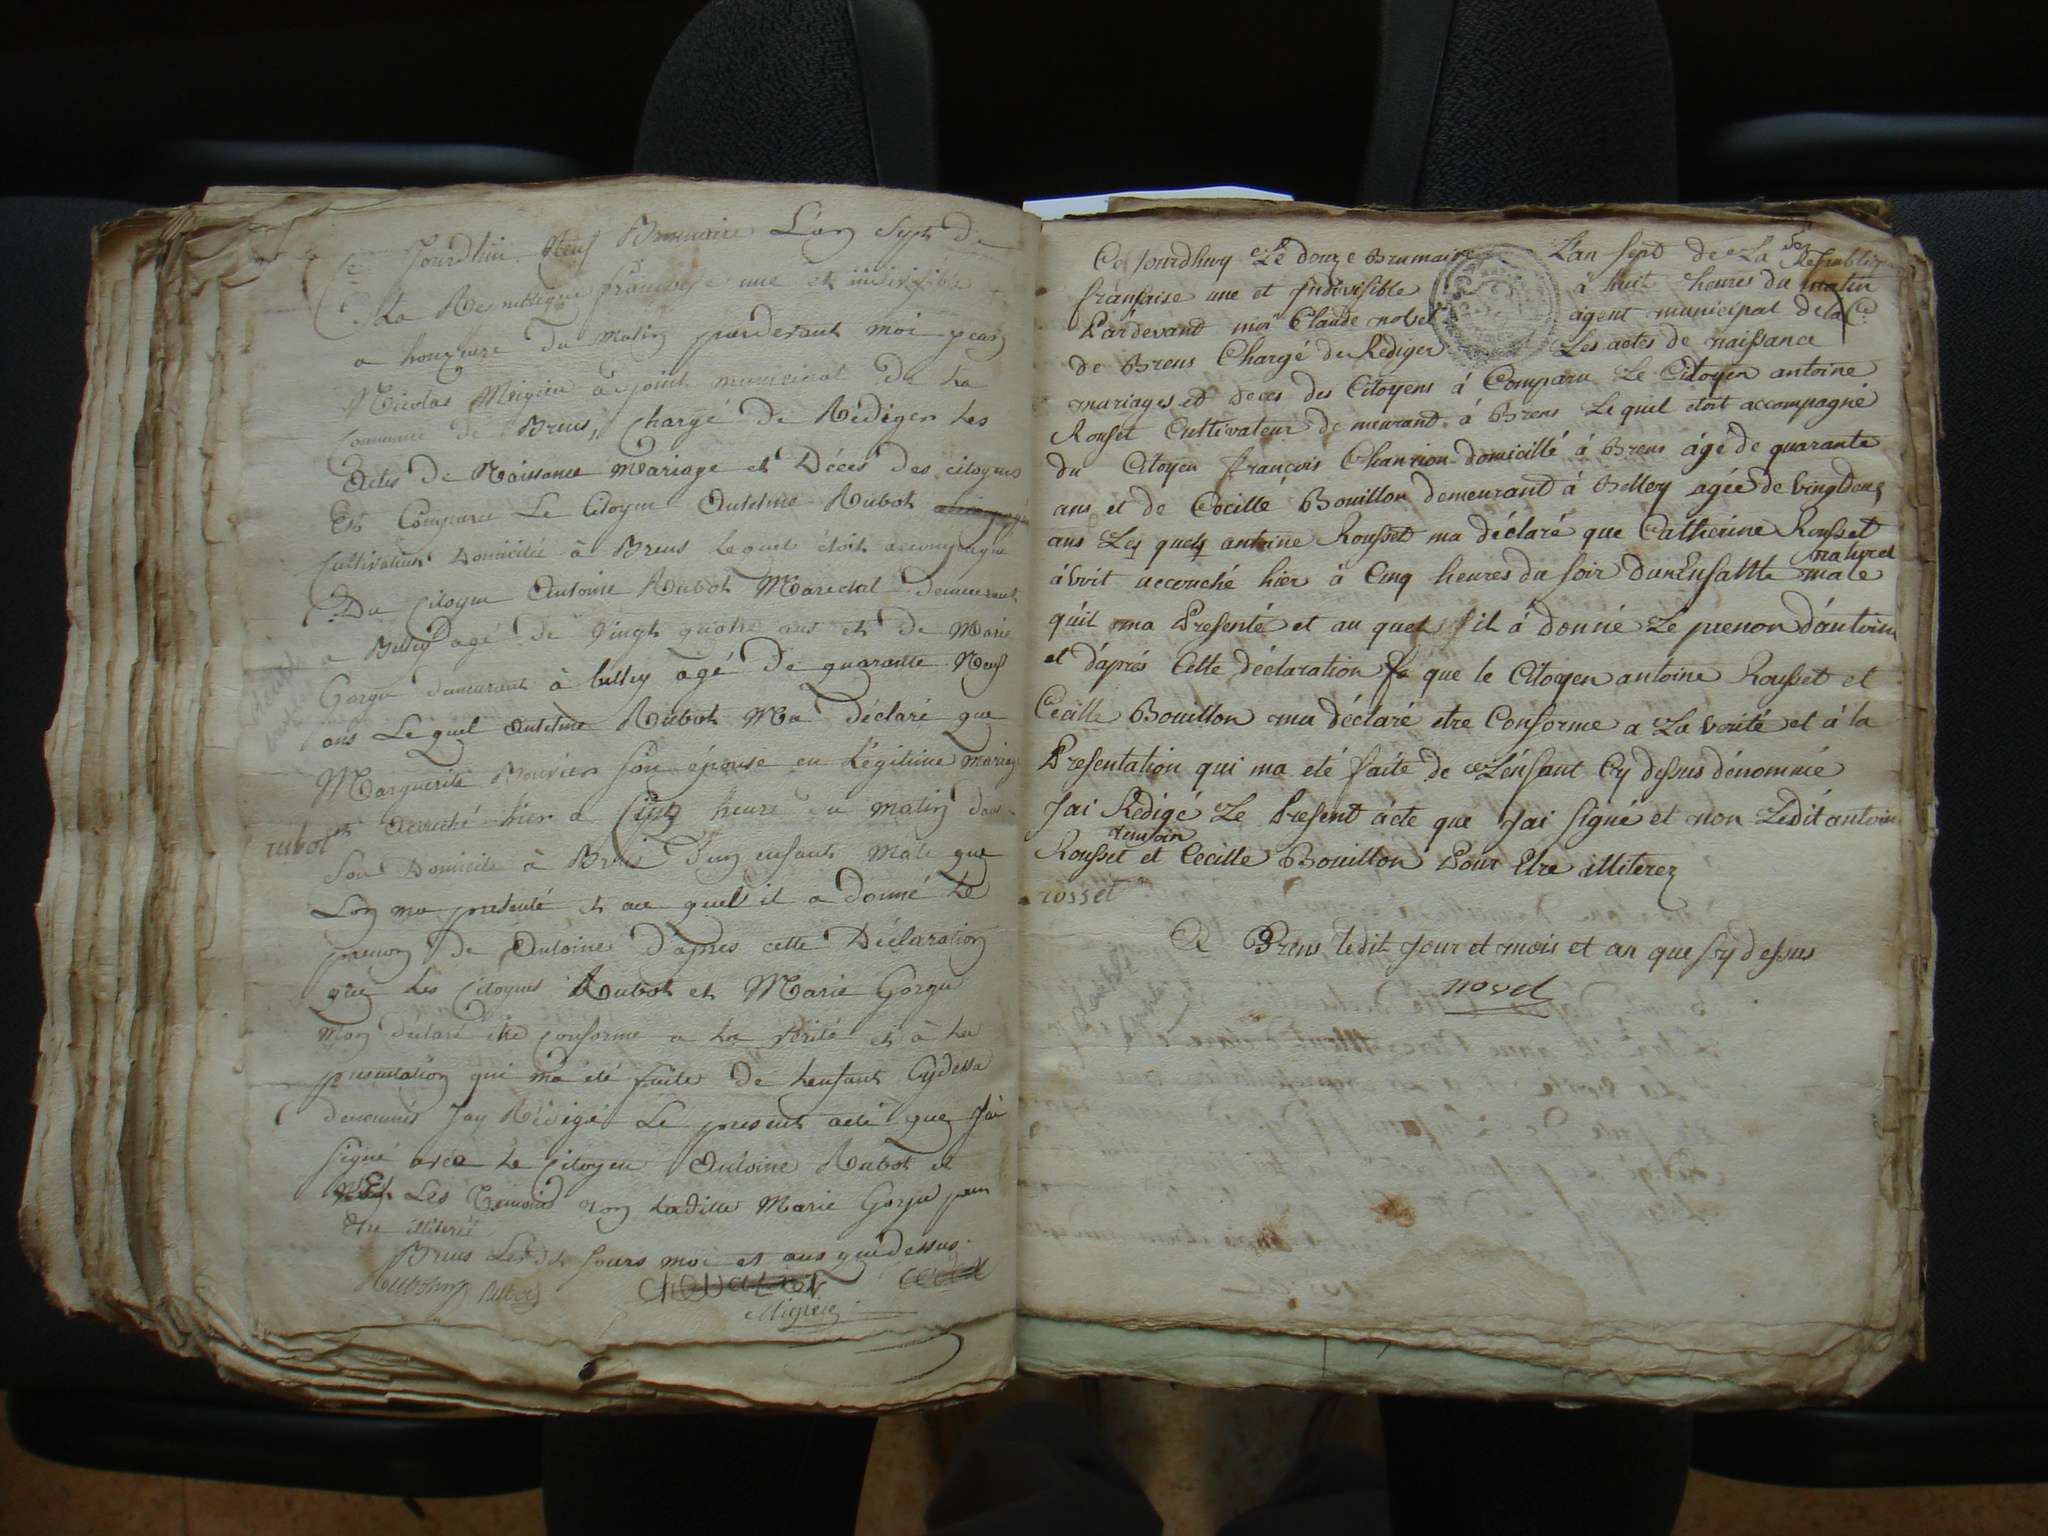 Ce Jourdhui Neuf Brumaire L'an Sept de
La Republique française une et indivisible
a honze heure du Matin pardevant moi jean
Nicolas Migieu adjoint municipal De La
Commune de Brens, Chargé De Rédiger Les
Actes de Naissance Mariage et Décès des citoyens
Est Comparu Le Citoyen Antelme Rubot
Cultivateur Domicilié à Brens lequel étoit accompagné
Du Citoyen Antoine Rubot Marechal demeurant
a Belley agé de vingt quatre ans et de Marie
Gorgu demeurant à belley agé De quarante Neuf
ans Lequel Antelme Rubot Ma déclaré que
Marguerite Bouvier son épouse en Légitime mariage
rubot
et acouché hier a Sept heure du matin dans
Son Domicile à Brens D'un enfant Male que
Lon ma presenté et au quel il a Donné Le
prenon de Antoine D'apres cette Déclaration
que Les Citoyens Rubot et Marie Gorgu
Mon déclaré être conforme a La vérité et à La
presentation qui ma été faite De Lenfant Cydessu
denommés Jay Rédigé Le present acte que Jai
signé avec Le Citoyen Antoine Rubot et
Les Temoins Non Ladite Marie Gorgu pour
être illiteré
Brens Ledit Jours moi et ans quedessus.
Rubot
Migieu
Ce Jourdhuy Le douze Brumaire L'an sept de La Republique
française une et Indivisible à huit heures du matin
Pardevant moi Claude novel agent municipal de la Ce
de Brens Chargé de Rediger Les actes de naissance
mariages et deces des Citoyens à Comparu Le Citoyen antoine
Rousset Cultivateur demeurant à Brens Lequel etoit accompagné
du Citoyen françois Chanrion domicillé à Brens âgé de quarante
ans et de Cecille Bouillon demeurant à Belley agée de vingtdeuz
ans Les quels antoine Rousset ma déclaré que Catherine Rousset
naturel
àvoit accouché hier à Cinq heures du soir dun Enfant male
qu'il ma Presenté et au quel il à donné Le prenon d'antoine
et d'aprés Cette déclaration que le Citoyen antoine Rousset et
Cecille Bouillon ma déclaré etre Conforme a La verité et à la
Presentation qui ma eté faite de Lénfant Cy dessus dénommé
Jai Rédigé Le Present àcte que Jai signé et non Ledit antoine
temoin
Rousset et Cecille Bouillon Pour Etre illiterez
rosset
A Brens ledit Jour et mois et an que sy dessus
novel